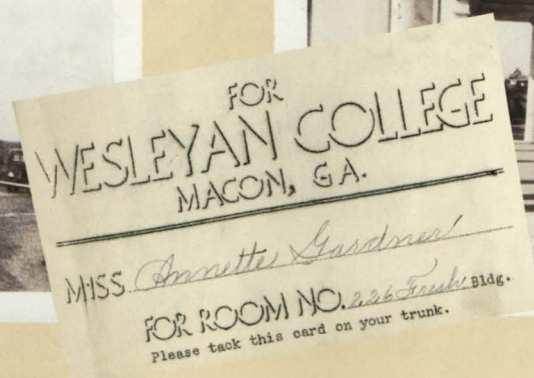 FOR
WESLEYAN COLLEGE
MACON, GA.
MISS Annette Gardner
FOR ROOM NO. 226 Fresh. Bldg.
Please tack this card on your trunk.